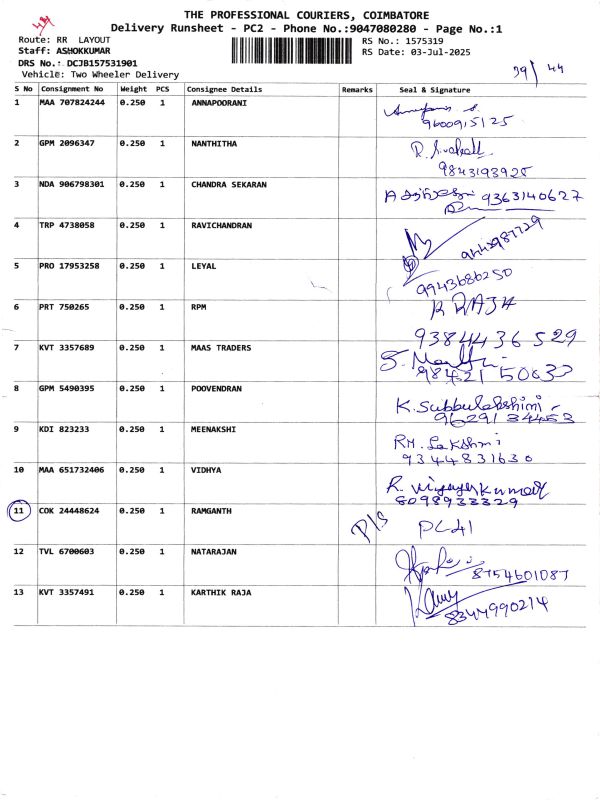 THE PROFESSIONAL COURIERS, COIMBATORE
Delivery Runsheet - PC2 - Phone No.:9047080280 - Page No.:1
Route: RR LAYOUT
RS No.: 1575319
Staff: ASHOKKUMAR
RS Date: 03-Jul-2025
DRS No.: DCJB157531901
Vehicle: Two Wheeler Delivery
39/44
S No Consignment No Weight PCS Consignee Details Remarks Seal & Signature
1 MAA 707824244 0.250 1 ANNAPOORANI
9600915125
2 GPM 2096347 0.250 1 NANTHITHA
9843193925
3 NDA 906798301 0.250 1 CHANDRA SEKARAN 9363140627
4 TRP 4738058 0.250 1 RAVICHANDRAN
5 PRO 17953258 0.250 1 LEYAL
9943686250
6 PRT 750265 0.250 1 RPM R RAJA
9384436529
7 KVT 3357689 0.250 1 MAAS TRADERS
8 GPM 5490395 0.250 1 POOVENDRAN K. Subbulakshimi
9629134453
9 KDI 823233 0.250 1 MEENAKSHI RM. Lakshmi
9344831630
10 MAA 651732406 0.250 1 VIDHYA R. Vijayakumar
8098933329
11 COK 24448624 0.250 1 RAMGANTH P/S PL41
12 TVL 6700603 0.250 1 NATARAJAN
8754601087
13 KVT 3357491 0.250 1 KARTHIK RAJA
8344990214